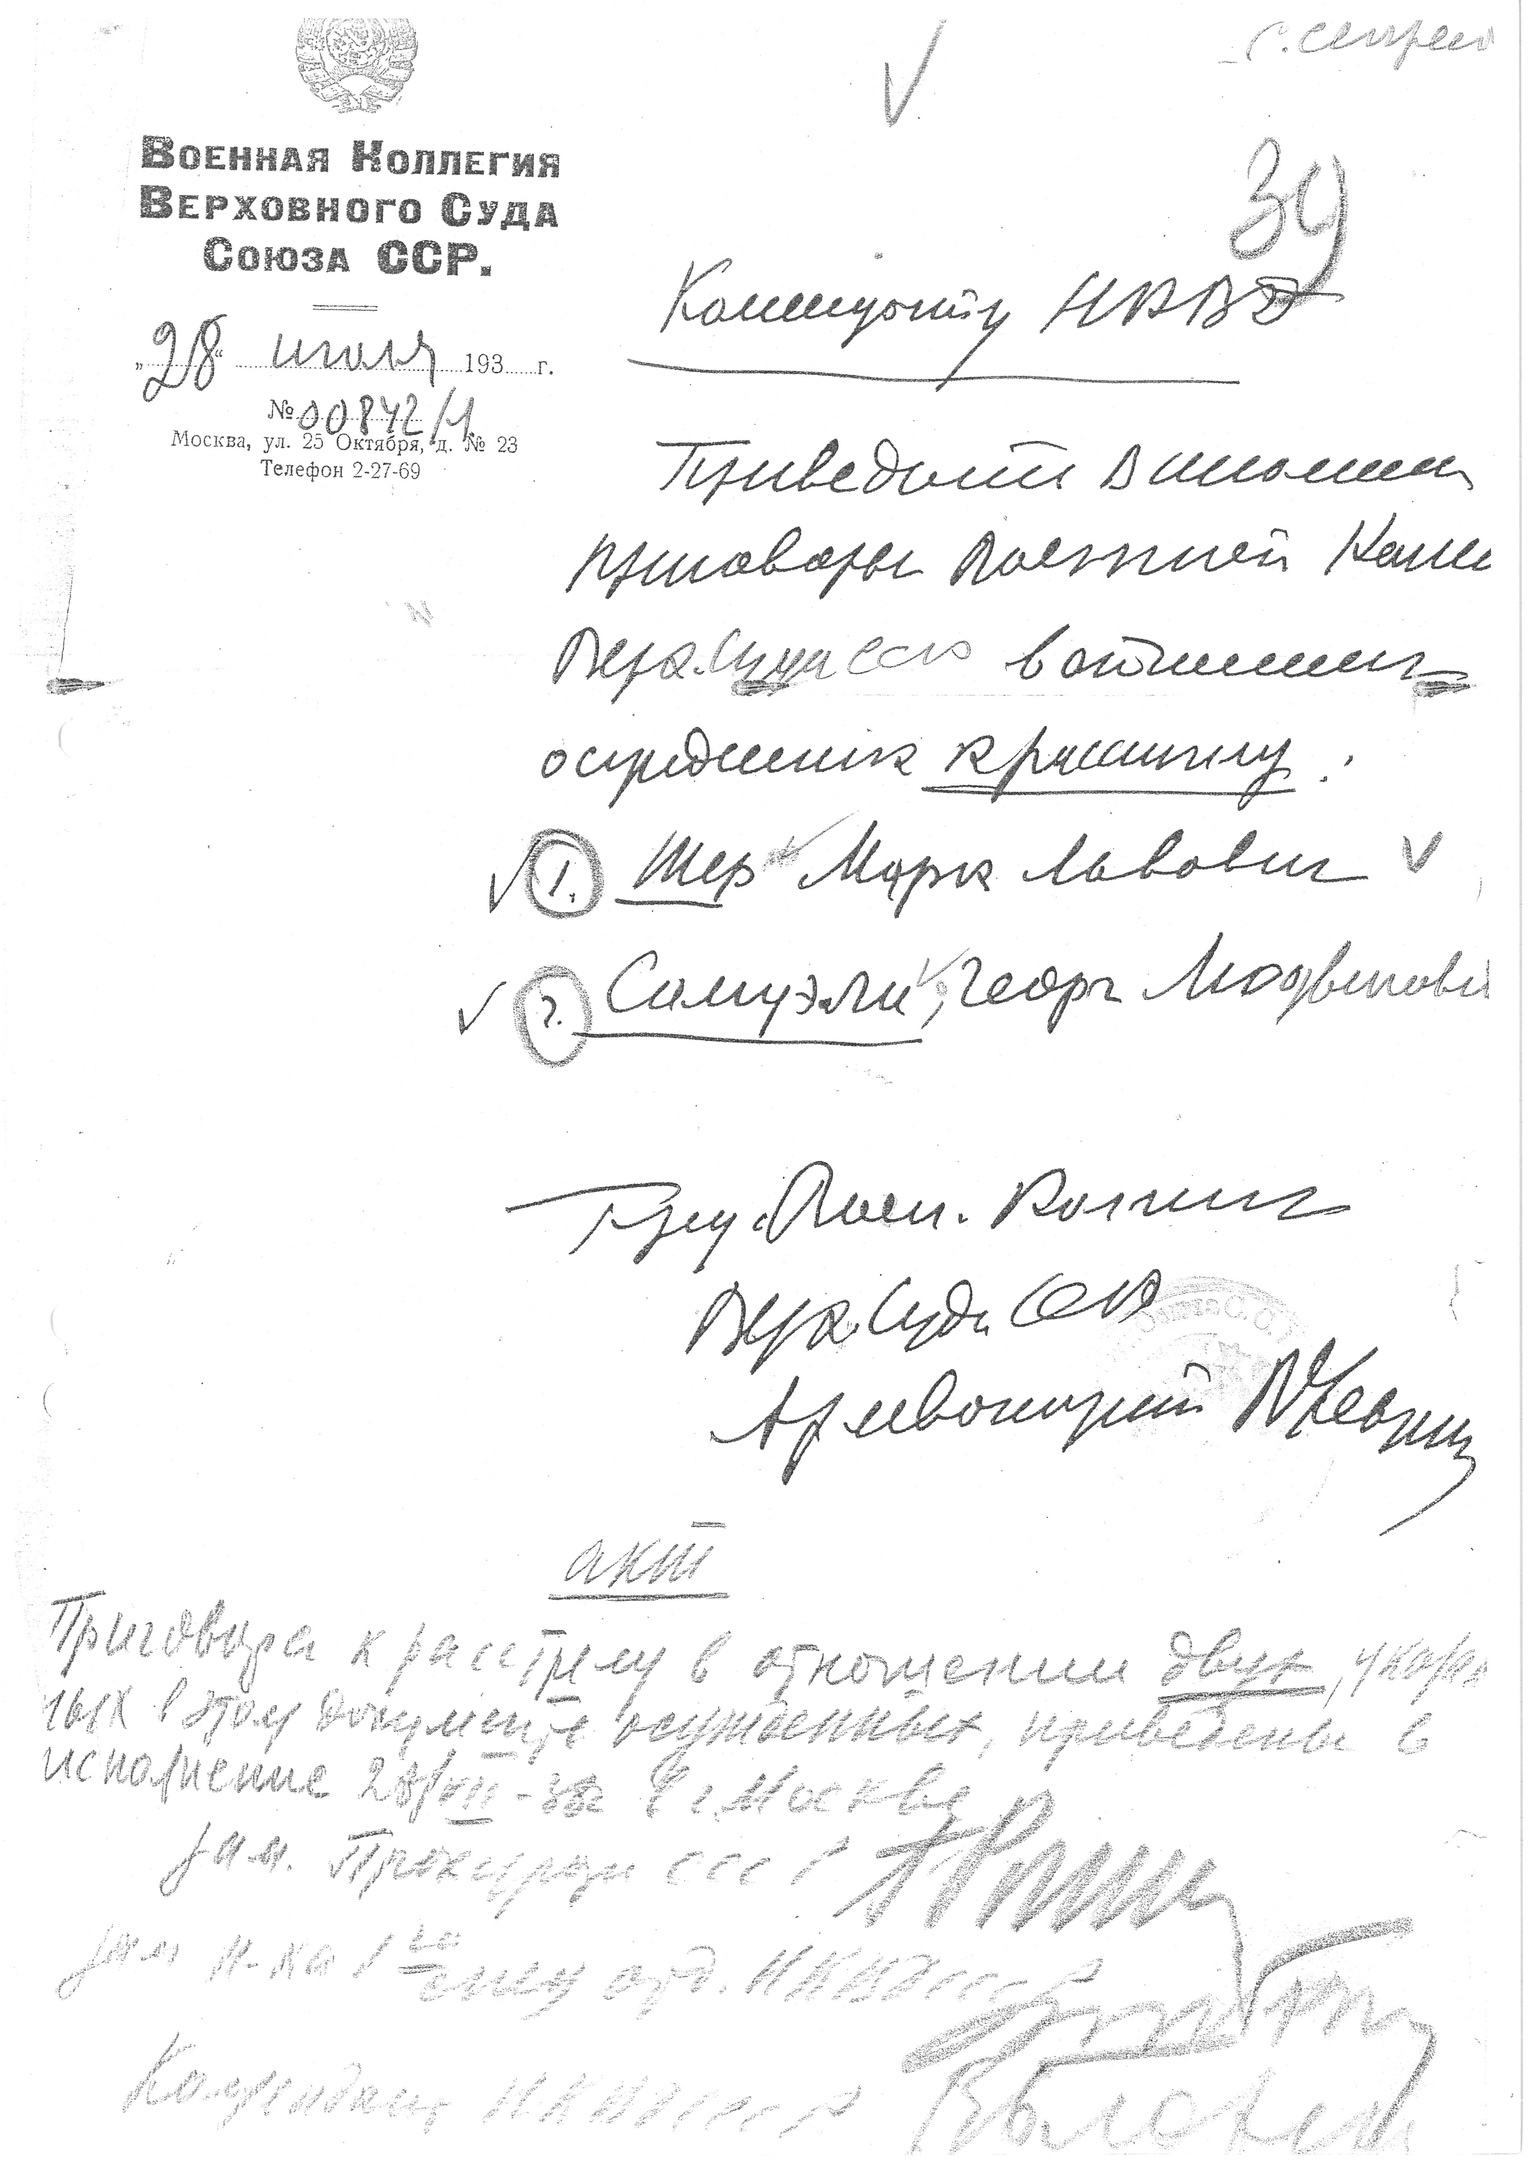 С. секрет
39
Военная Коллегия
Верховного Суда
Союза ССР.
„28“ июля 193 г.
№ 00842/
Москва, ул. 25 Октября, д. № 23
Телефон 2-27-69
Коменданту НКВД
Приведите в исполнен
приговоры Военной Колле
Верх.Суда СССР в отношении
осужденных к расстрелу:
1. Шер Марк Львович
2. Самуэли, Георг Людвигови
Пред. Воен. Коллегии
Верх. Суда СССР
Армвоенюрист В Ульрих
Акт
Приговора к расстрелу в отношении двух, указан
ных в этом документе осужденных, приведены в
исполнение 28/VII-38г в г. Москве
Зам. Прокурора СССР
Зам н-ка 1го спец отд. НКВД СССР
Комендант НКВД СССР